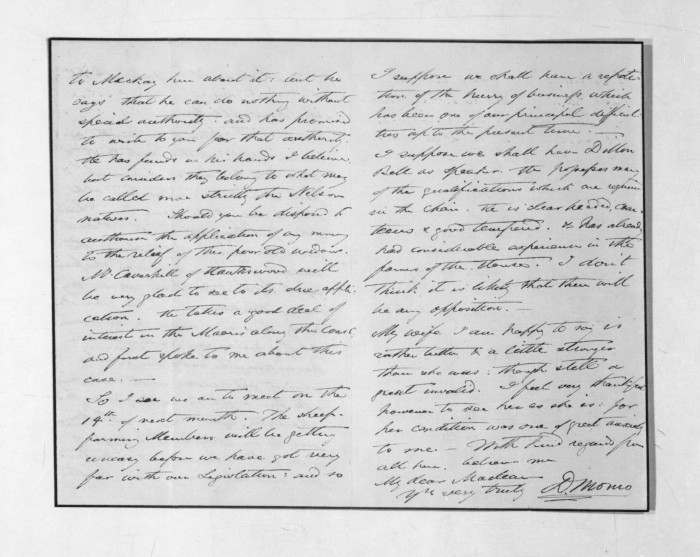 to Mackay here about it: but he
says that he can do nothing without
special authority: and has promised
to write to you for that authority.
He has funds in his hands I believe
but considers they belong to what may
be called more strictly the Nelson
natives. Should you be disposed to
authorise the application of any money
to the relief of this poor old widow.
Mr Caverhill of Hawkeswood will
be very glad to see to its due appli-
cation. He takes a good deal of
interest in the Maoris along this coast
and first spoke to me about this
case. —
So I see we are to meet on the
14th of next month. The sheep-
farming Members will be getting
uneasy before we have got very
far with our Legislation: and so
I suppose we shall have a repeti-
tion of the hurry of business, which
has been one of our principal difficul-
ties up to the present time. —
I suppose we shall have Dillon
Bell as speaker. He possesses many
of the qualifications which are required
in the Chair. He is clear headed, cour-
teous & good tempered. & has already
had considerable experience in the
forms of the House. I don't
think it is likely that there will
be any opposition. —
My wife I am happy to say is
rather better & a little stronger
than she was: though still a
great invalid. I feel very thankful
however to see her as she is: for
her condition was one of great anxiety
to me — With kind regards from
all here, believe me
My dear Maclean
Yrs very truly D. Monro